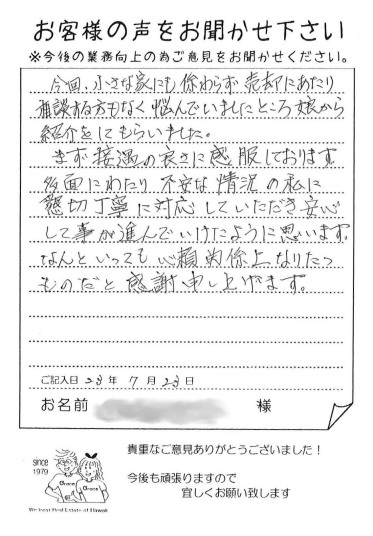 お客様の声をお聞かせ下さい
※今後の業務向上の為ご意見をお聞かせください。
今回、小さな家にも係わらず売却にあたり
相談する方もなく悩んでいましたところ娘から
紹介をしてもらいました。
まず接遇の良さに感服しております
多面にわたり不安な情況の私に
懇切丁寧に対応していただき安心
して事が進んでいけたように思います。
なんといっても信頼関係上なりたつ
ものだと感謝申し上げます。
ご記入日 23年 7月 23日
お名前 様
貴重なご意見ありがとうございました！
since
1979
Grace
Grace
今後も頑張りますので
宜しくお願い致します
We treat Real Estate of Hawaii